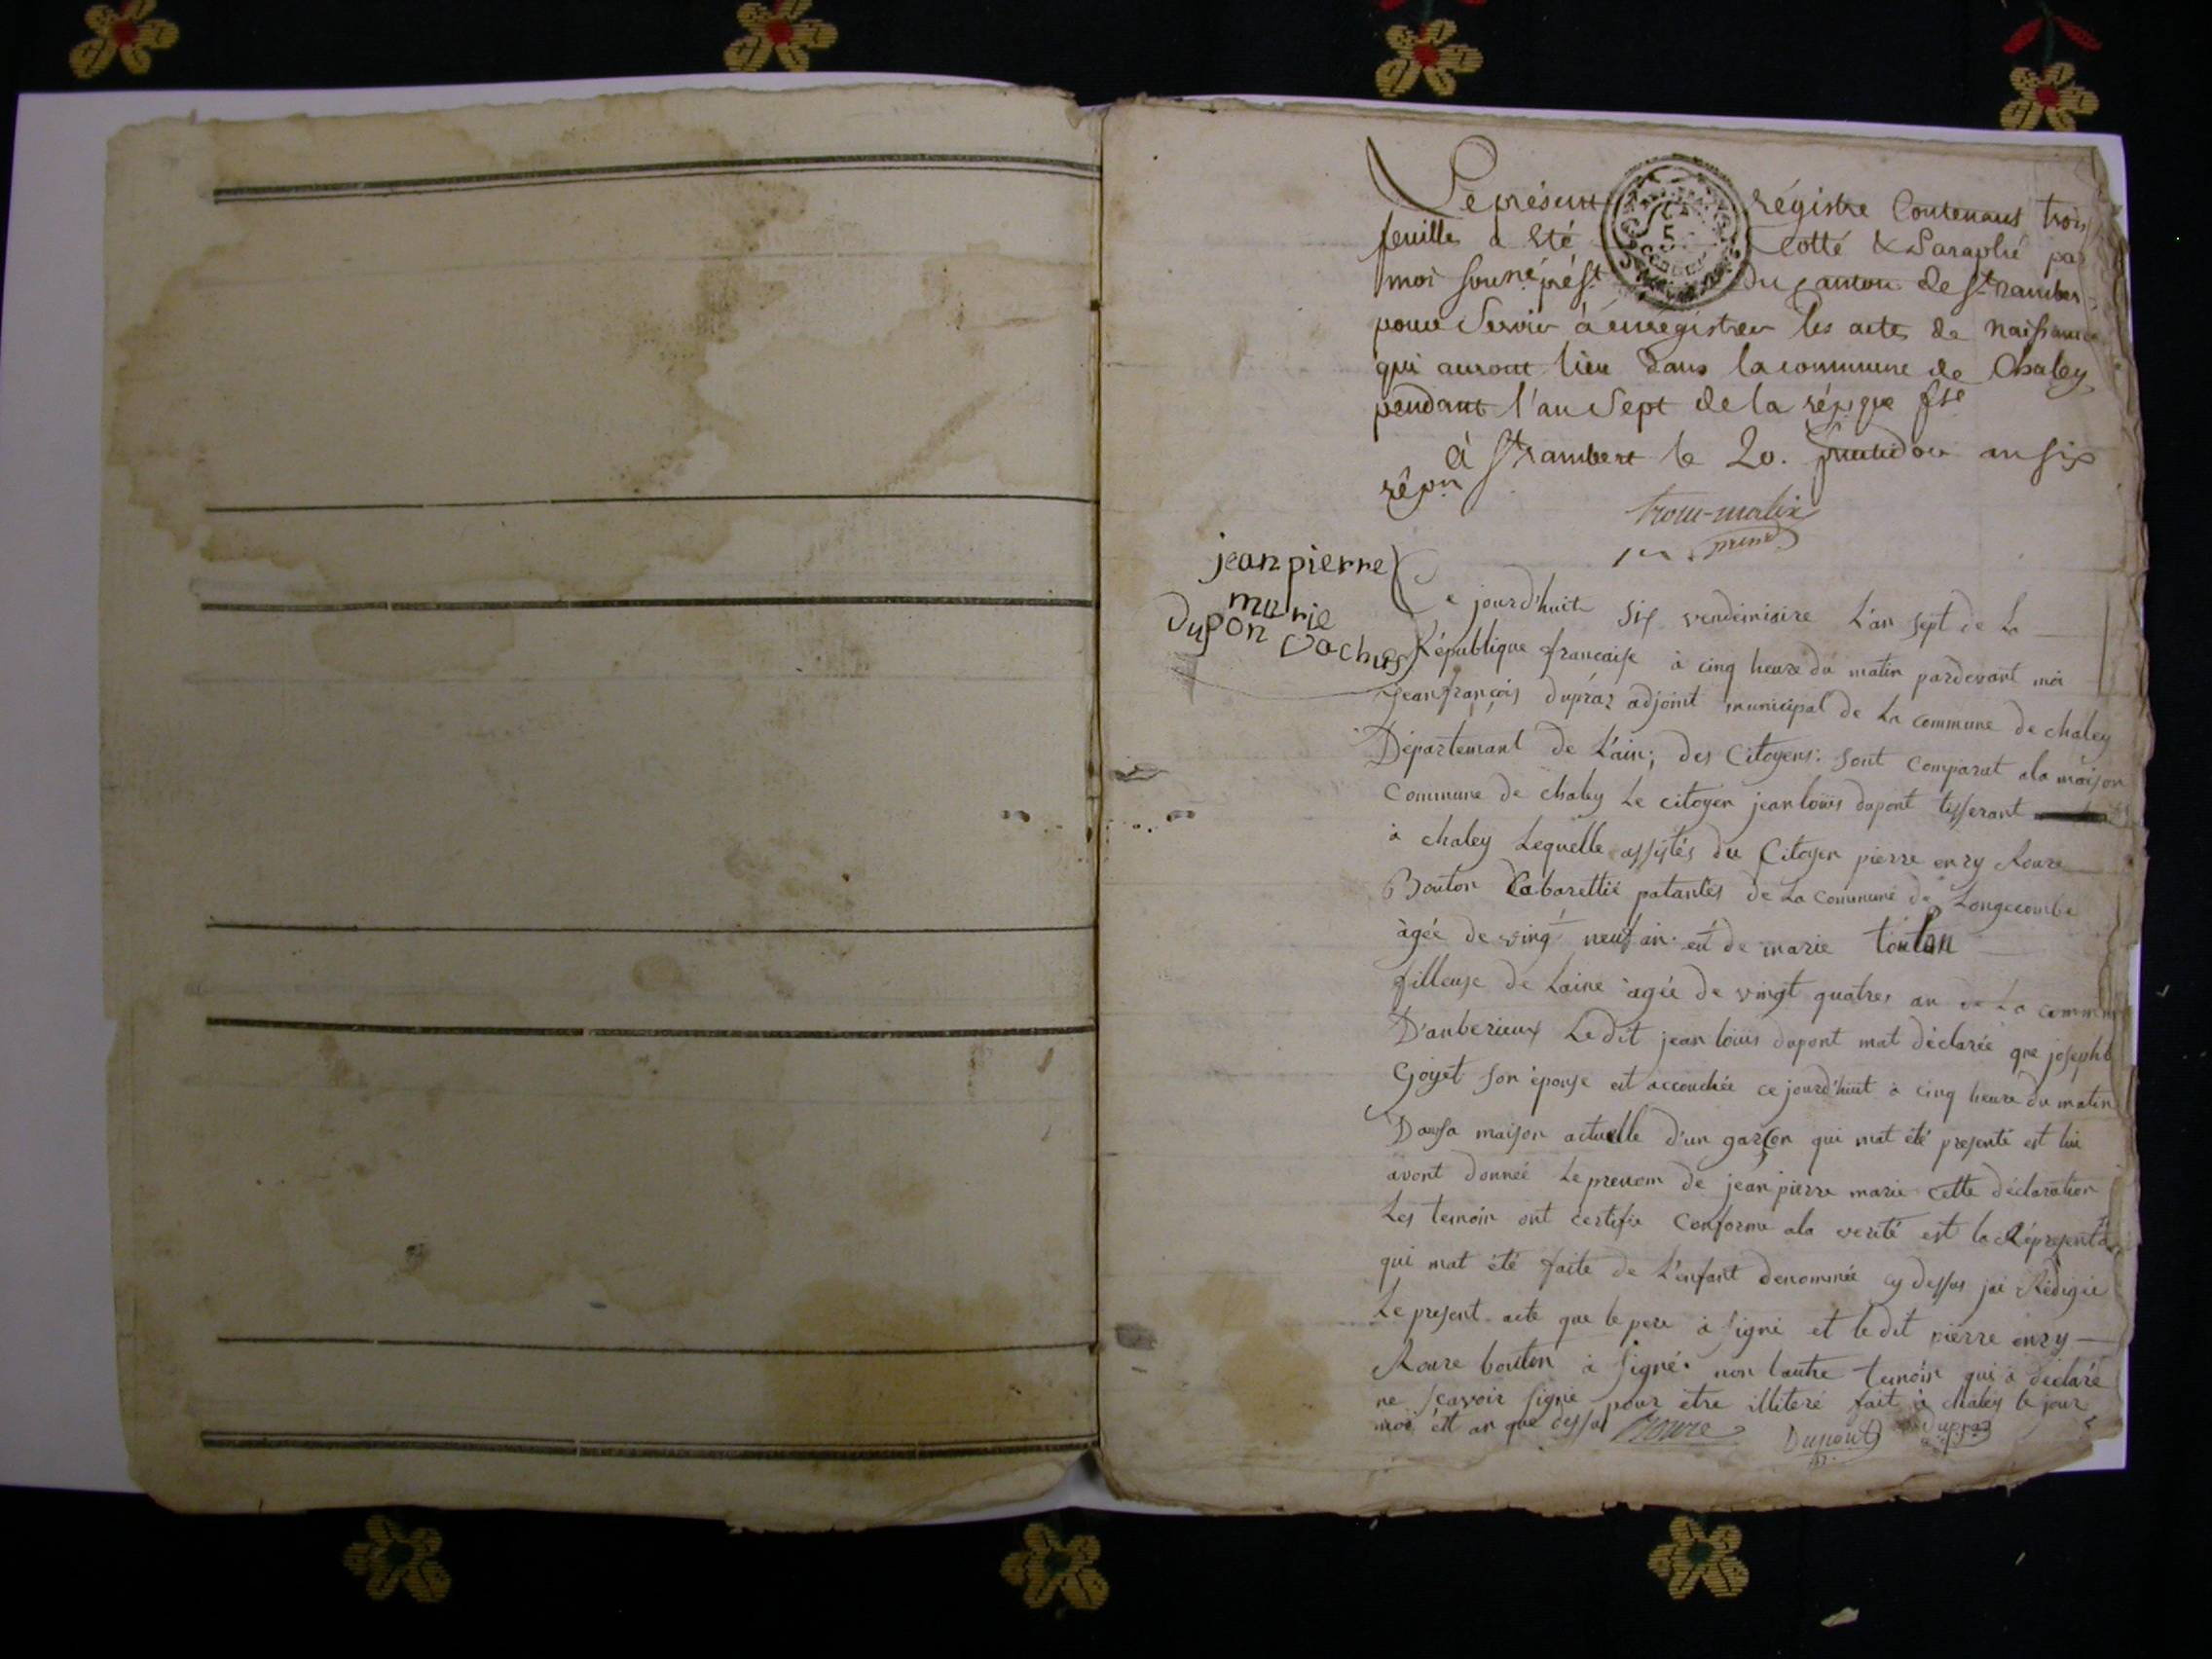 Le présent régistre Contenant trois
feuilles a été cotté & Paraphé par
moi sousné prést du canton de St rambert
pour Servir à enrégistrer les actes de naissance
qui auront lieu dans la commune de Chaley
pendant l'an Sept de la répque fse
à St rambert le 20. fructidor an six
répn
jean pierre
marie
Dupon
Ce jourd'huit six vendemiaire L'an sept de La
République francaise à cinq heure du matin pardevant moi
jeanfrançois dupraz adjoint municipal de La commune de chaley
Départemant de L'ain; des Citoyens: sont Comparut ala maison
Commune de chaley Le citoyen jean louis dupont tisserant
à chaley Lequelle assistés du Citoyen pierre enry Roure
Bouton Cabarettié patantés de La Commune de Longecombe
àgée de vingt neuf an et de marie
filleuse de Laine àgée de vingt quatres an de La commune
D'anberieux Ledit jean louis dupont mat déclarée que josephte
Goyet son épouse est accouchée ce jourd'huit à cinq heure du matin
Dansa maison actuelle d'un garçon qui mat été presenté est lui
avont donneé Le prenom de jean pierre marie cette déclaration
Les temoin ont certifie Conforme ala verité est la Répresentation
qui mat été faite de L'enfant denommée cy dessus jai Rédigée
Le present acte que le pere à signé et ledit pierre enry
Roure bouton à signé. non lautre temoin qui à déclaré
ne scavoir signé pour etre illiteré fait à chaley le jour
moi et an que dessus Roure Dupont Dupraz